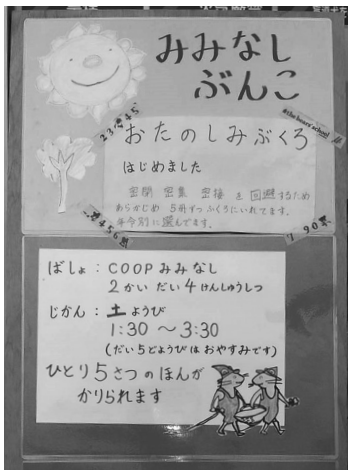 みみなし
ぶんこ
おたのしみぶくろ
はじめました
密閉 密集 密接 を 回避するため
あらかじめ 5冊ずつふくろにいれてます。
年令別に選んでます。
ばしょ：COOP みみなし
2かい だい4けんしゅうしつ
じかん：土ようび
1:30 〜 3:30
(だい5どようび は おやすみです)
ひとり5さつのほんが
かりられます